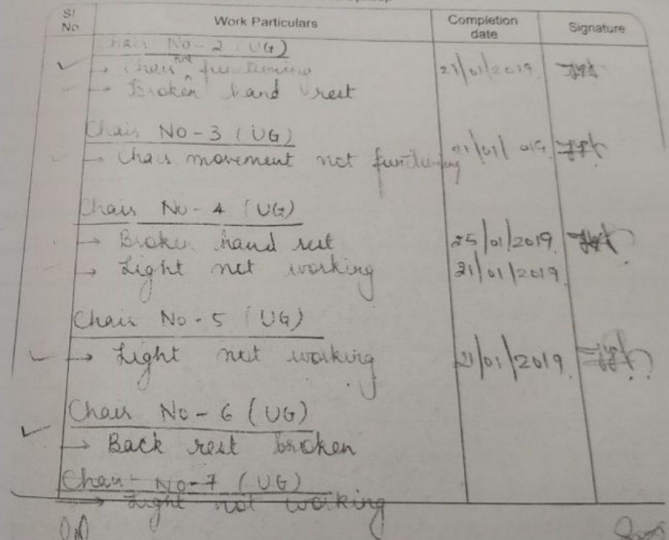 Sl No. Work Particulars Completion date Signature
Chair No-2 (UG)
→ Chair not functioning 21/01/2019
→ Broken hand rest
Chair No-3 (UG)
→ Chair movement not functioning 21/01/019
Chair No-4 (UG)
→ Broken hand rest 25/01/2019
→ Light not working 21/01/2019
Chair No-5 (UG)
→ Light not working 21/01/2019
Chair No-6 (UG)
→ Back rest broken
Chair No-7 (UG)
→ Light not working